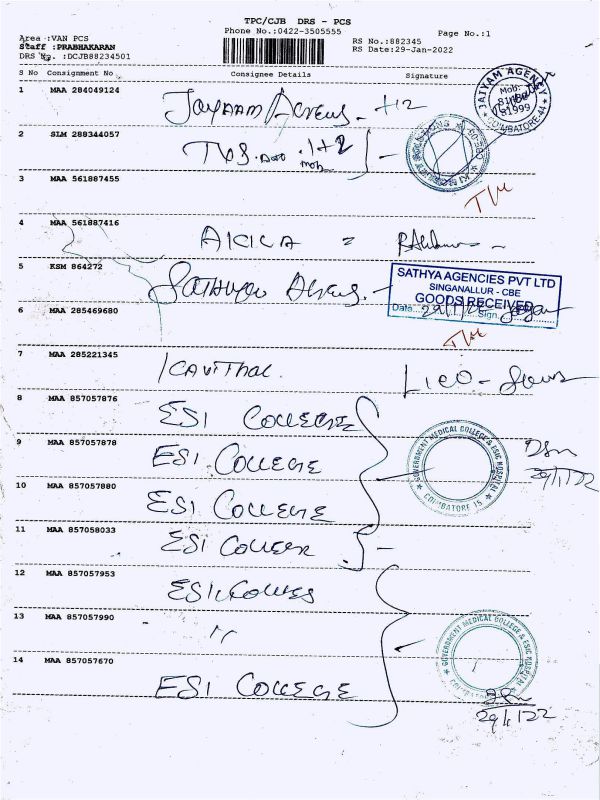 TPC/CJB DRS - PCS
Phone No.:0422-3505555
Page No.:1
Area :VAN PCS
RS No.:882345
Staff :PRABHAKARAN
RS Date:29-Jan-2022
DRS No. :DCJB88234501
S No Consignment No Consignee Details Signature
1 MAA 284049124
JAIYAM AGENCY
Mob:
COIMBATORE-44
2 SLM 288344057
TVS
3 MAA 561887455
4 MAA 561887416
AKILA
5 KSM 864272
SATHYA AGENCIES PVT LTD
SINGANALLUR - CBE
GOODS RECEIVED
Date 29/1/22 Sign.
6 MAA 285469680
7 MAA 285221345
Kavitha
8 MAA 857057876
ESI COLLEGE
9 MAA 857057878
ESI COLLEGE
GOVERNMENT MEDICAL COLLEGE & ESIC HOSPITAL
COIMBATORE 15
29/1/22
10 MAA 857057880
ESI COLLEGE
11 MAA 857058033
ESI COLLEGE
12 MAA 857057953
ESI COLLEGE
13 MAA 857057990
"
GOVERNMENT MEDICAL COLLEGE & ESIC HOSPITAL
14 MAA 857057670
ESI COLLEGE
29/1/22